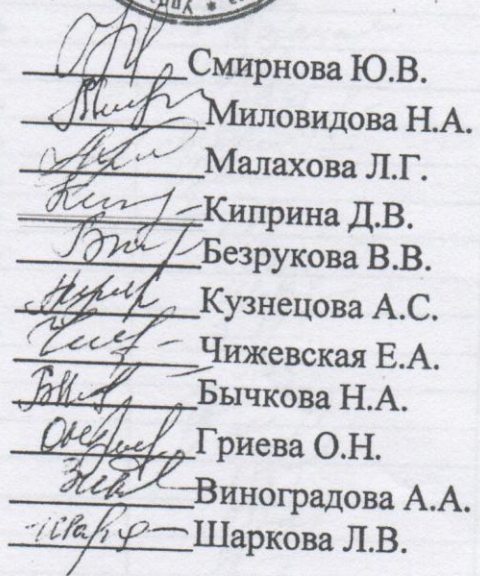 Смирнова Ю.В.
Миловидова Н.А.
Малахова Л.Г.
Киприна Д.В.
Безрукова В.В.
Кузнецова А.С.
Чижевская Е.А.
Бычкова Н.А.
Гриева О.Н.
Виноградова А.А.
Шаркова Л.В.